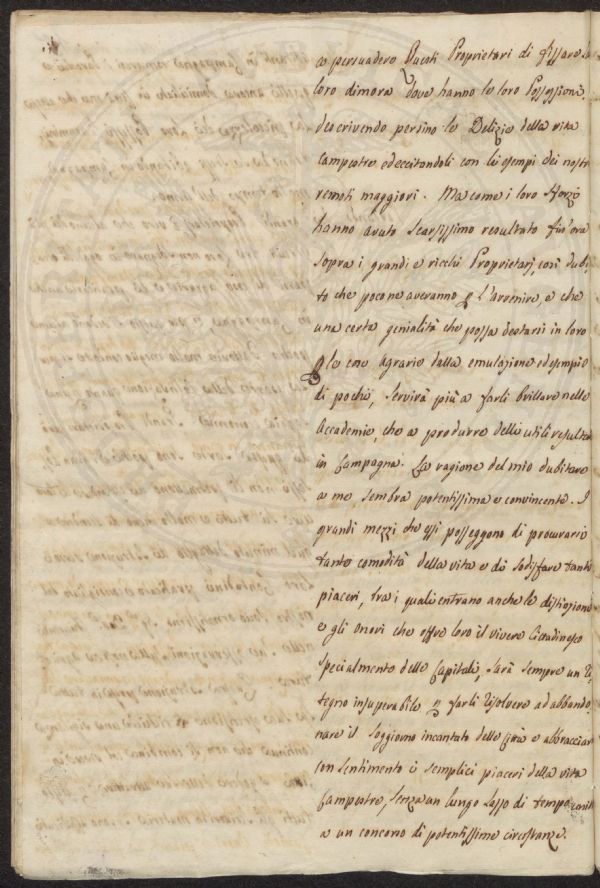 a persuadere Questi Proprietari di fissare la
loro dimora dove hanno le loro Possessioni,
descrivendo persino le Delizie della vita
Campestre ed eccitandoli con li esempi dei nostri
remoti maggiori. Ma come i loro sforzi
hanno avuto scarsissimo resultato fin'ora
sopra i grandi e ricchi Proprietarj, così dubi
to che poco ne averanno p L'avvenire, e che
una certa genialità che possa destarsi in loro
p le cose Agrarie dalla emulazione ed esempio
di pochi, servirà più a farli brillare nelle
Accademie, che a produrre delli utili resultati
in Campagna. La ragione del mio dubitare
a me, sembra potentissima e convincente. I
grandi mezzi che essi posseggono di procurarsi
tante comodità della vita e di sodisfare tanti
piaceri, fra i quali entrano anche le distinzioni
e gli onori che offre loro il vivere Cittadinesco
specialmente delle Capitali, sarà sempre un Ri
tegno insuperabile p farli risolvere ad abbando
nare il soggiorno incantato delle Città e abbracciar
con sentimento i semplici piaceri della vita
Campestre, senza un lungo lasso di tempo unito
a un concorso di potentissime circostanze.